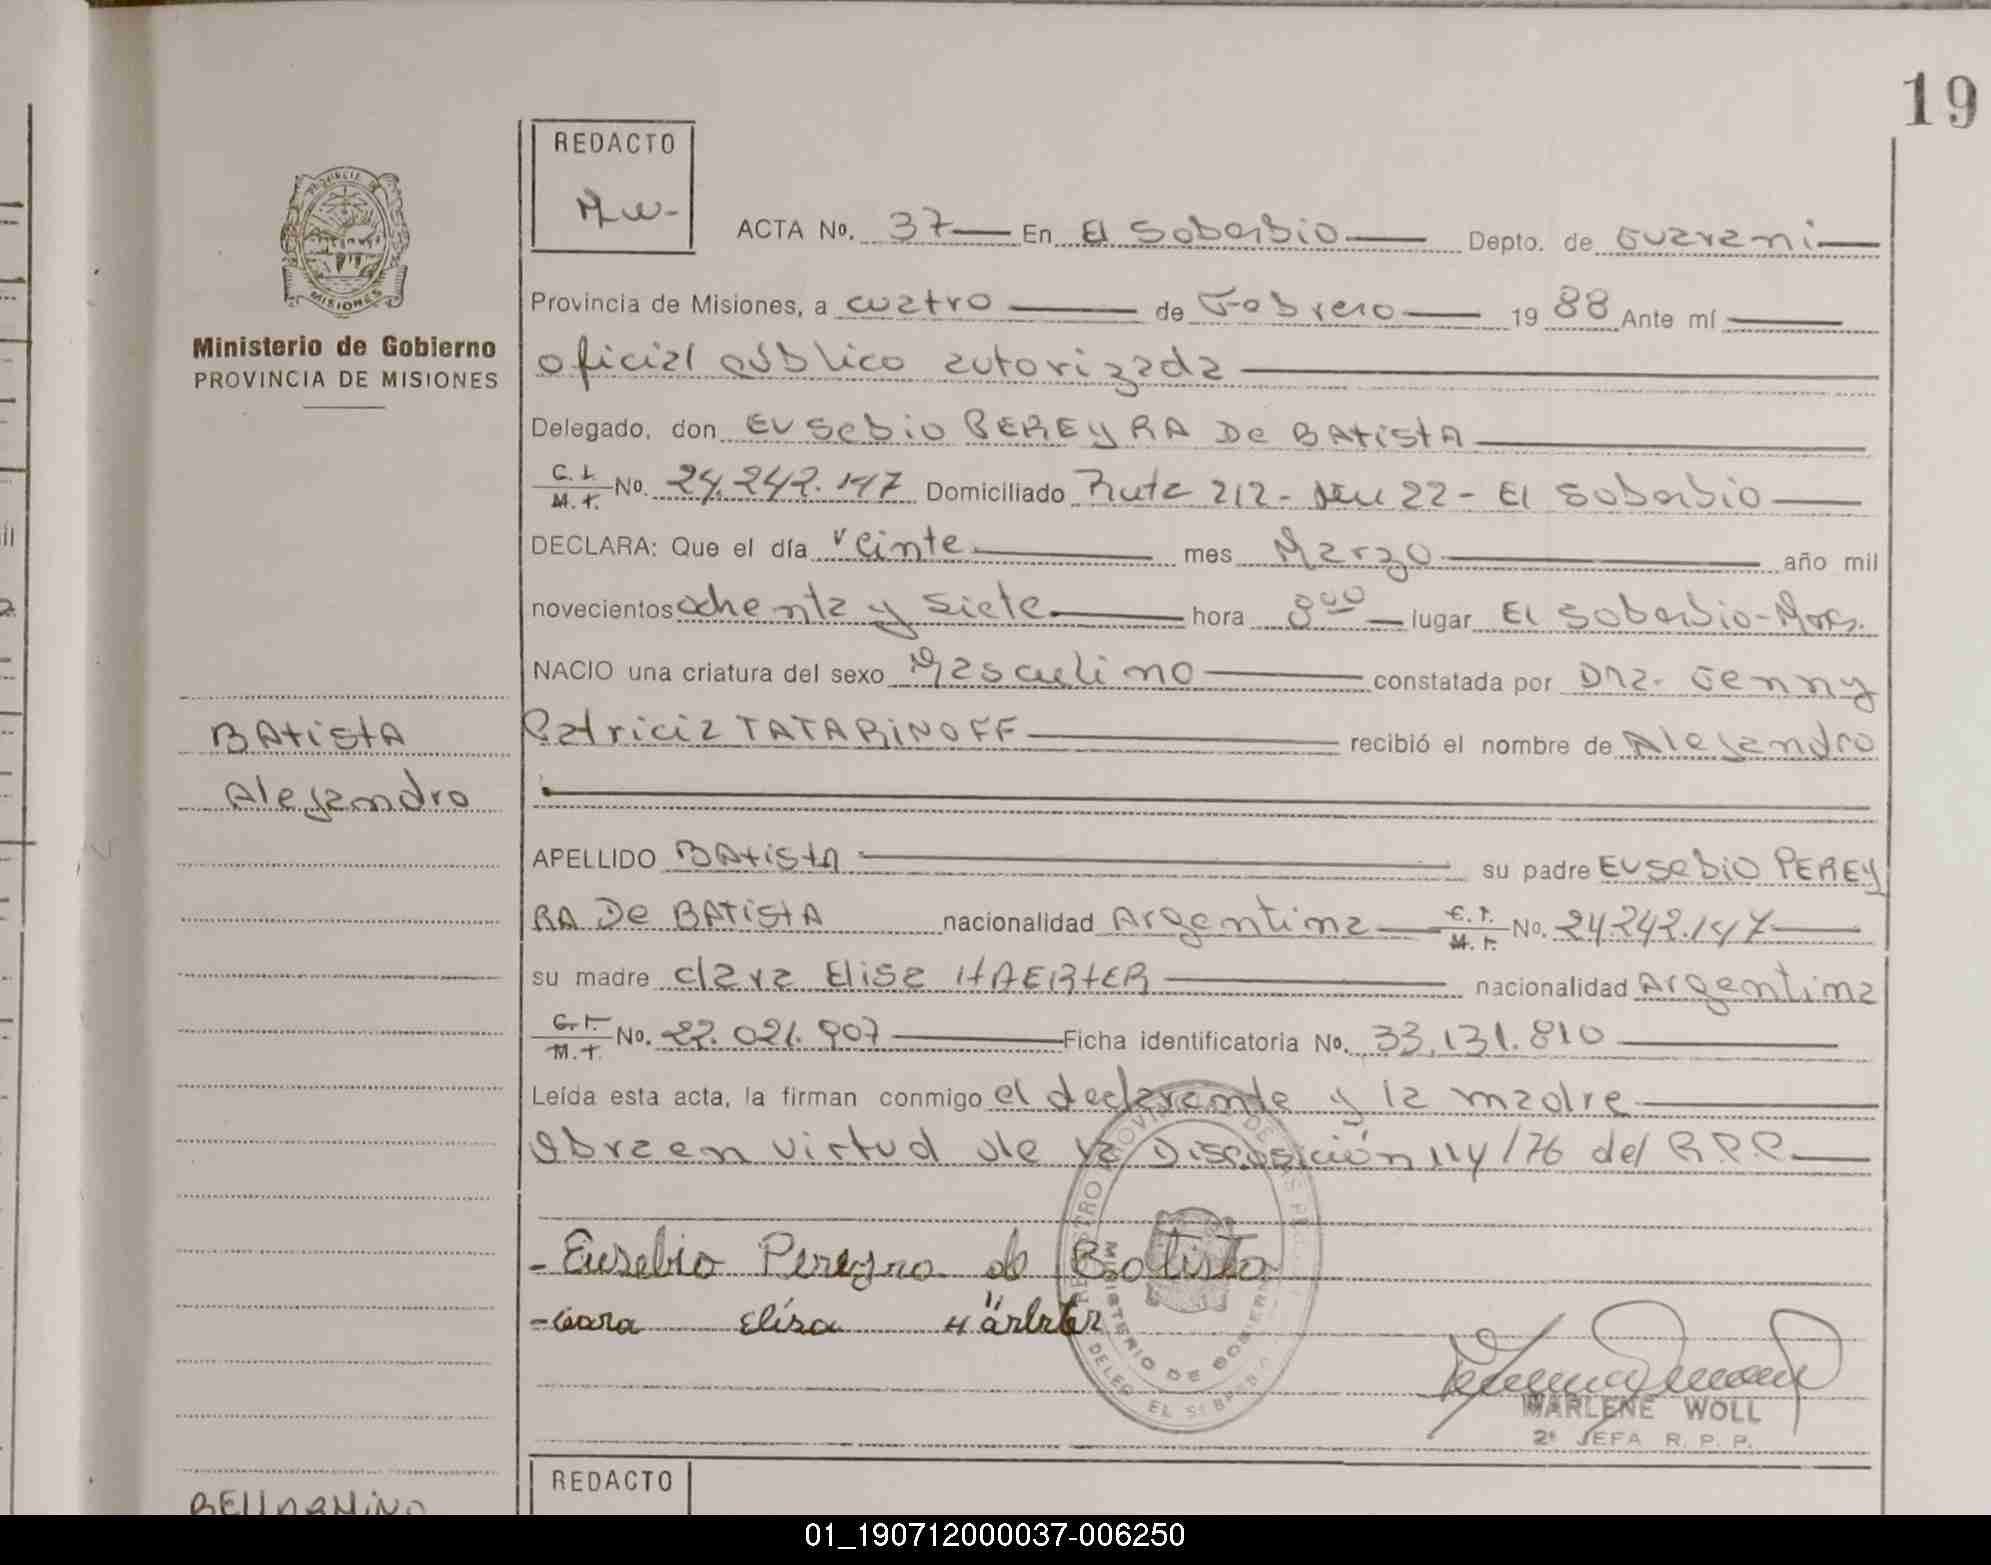 19
REDACTO
Mw-
ACTA No. 37 En El Soberbio Depto. de Guarani
Provincia de Misiones, a cuatro de Febrero 1988 Ante mí
oficial público autorizada
Delegado, don Eusebio PEREYRA De BAtistA
C.I. M.I. No. 24.242.147 Domiciliado Ruta 212- Km 22- El Soberbio
DECLARA: Que el día veinte mes Marzo año mil
novecientos ochenta y siete hora 8 00 lugar El Soberbio-Mnes.
NACIO una criatura del sexo Masculino constatada por Dra. Jenny
Patricia TATARINOFF recibió el nombre de Alejandro
APELLIDO BAtistA su padre Eusebio PEREY
RA De BAtistA nacionalidad Argentina C.I. M.I. No. 24.242.147
su madre Clara Elisa HAERtER nacionalidad Argentina
C.I. M.I. No. 22.021.907 Ficha identificatoria No. 33.131.810
Leída esta acta, la firman conmigo el declarante y la madre
Obra en virtud de la Disposición 114/76 del RPP
- Eusebio Pereyra de Batista
- Elisa Härter
MARLENE WOLL
2ª JEFA R. P. P.
PROVINCIA DE
MISIONES
Ministerio de Gobierno
PROVINCIA DE MISIONES
BAtistA
Alejandro
MINISTERIO DE GOBIERNO
REDACTO
01_190712000037-006250